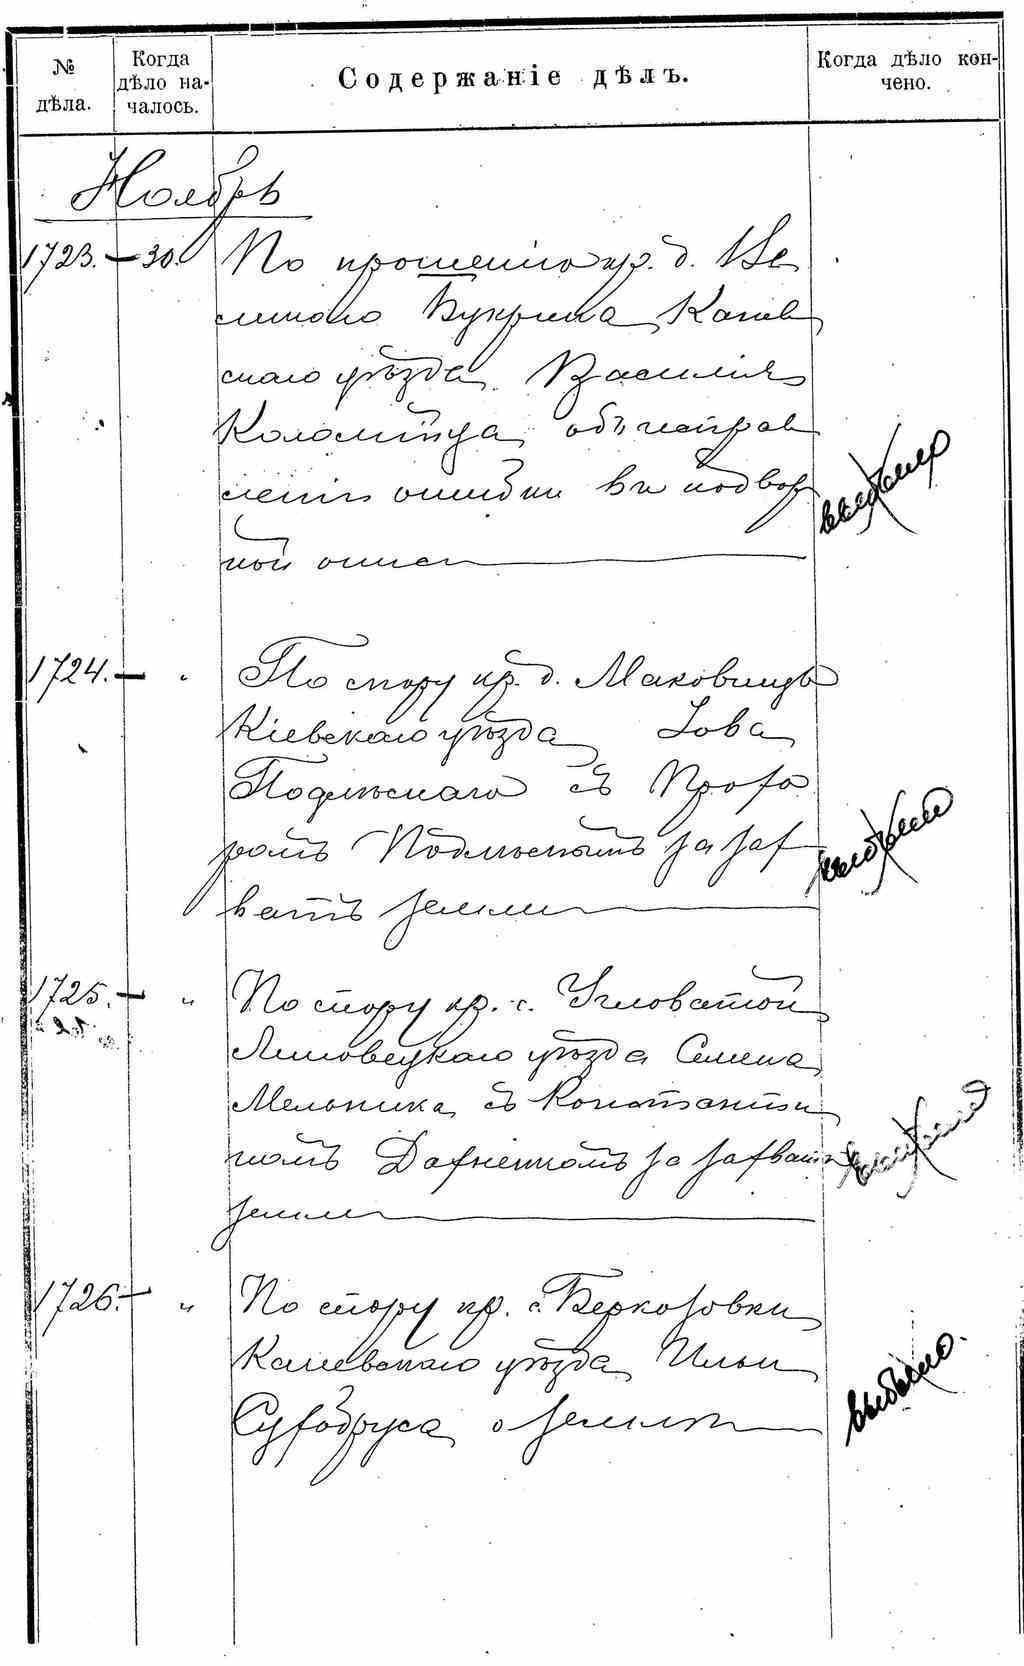 № дѣла.
Когда дѣло на-
чалось.
Содержаніе дѣлъ.
Когда дѣло кон-
чено.
Ноябрь
1723. — 30. По прошенію кр. д. Ве
ликаго Букрина Канев
скаго уѣзда Василія
Коломійца объ исправ
леніи ошибки въ подвор
ной описи
выбыло
1724. — " По спору кр. д. Маковищъ
Кіевскаго уѣзда Іова
Подлѣснаго съ Прохо
ромъ Подлѣснымъ за зах
ватъ земли
выбыло
1725. — " По спору кр. с. Угловатой
Липовецкаго уѣзда Семена
Мельника съ Константи
номъ Дахненкомъ за захватъ
земли
выбыло
1726. — " По спору кр. с. Беркозовки
Каневскаго уѣзда Ильи
Сухобруса о землѣ
выбыло.